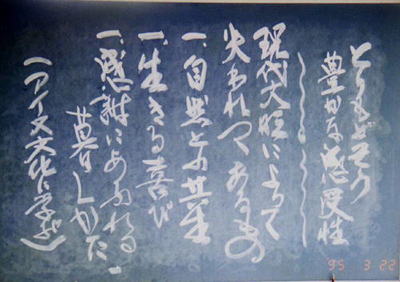 とりもどそう
豊かな感受性
現代文明によって
失われつつあるもの
一、自然との共生
一、生きる喜び
一、感謝にあふれる
暮しかた
（アイヌ文化に学ぶ）
'95 3 22